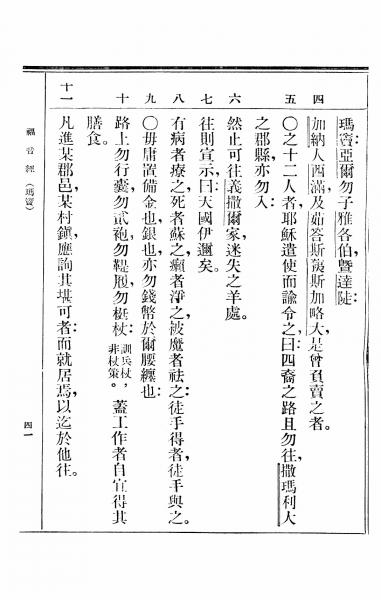 瑪竇亞爾勿子雅各伯暨達陡
四 加納人西滿及茹荅斯負賣之者。
五 ○之十二人者耶穌遣使而諭令之曰四裔之路且勿往撒瑪利大
之郡縣亦勿入
六 然止可往義撒爾家迷失之羊處。
七 往則宣示曰天國伊邇矣。
八 有病者療之死者蘇之癩者淨之被魔者祛之徒手得者徒手與之。
九 ○毋庸置備金也銀也亦勿錢幣於爾腰纏也
十 路上勿行囊勿貳袍勿鞮履勿梃杖訓兵杖，非杖策。蓋工作者自宜得其
膳食。
十一 凡進某郡邑某村鎮應詢其堪可者而就居焉以迄於他往。
福音經（瑪竇）
四一